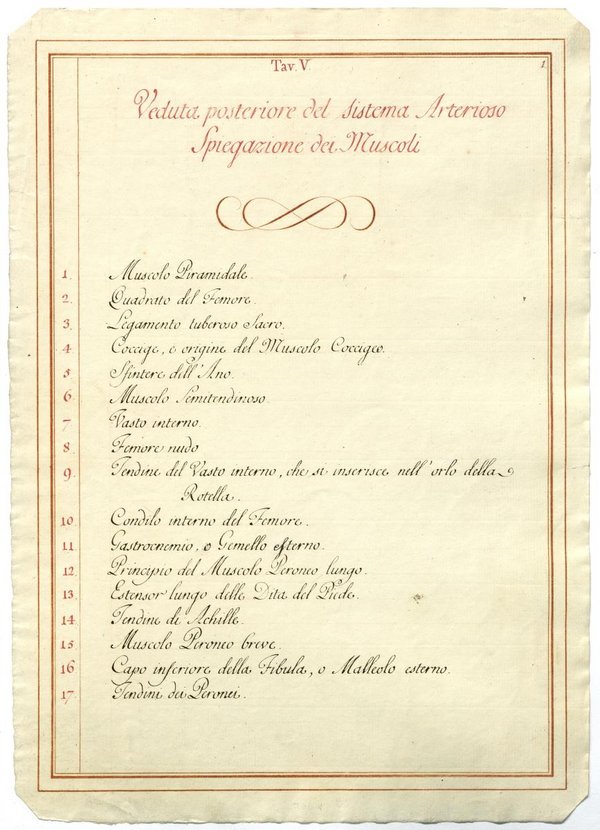 Tav. V.
1.
Veduta posteriore del sistema Arterioso
Spiegazione dei Muscoli
1. Muscolo Piramidale.
2. Quadrato del Femore.
3. Legamento tuberoso Sacro.
4 Coccige, e origine del Muscolo Coccigeo.
5 Sfintere dell'Ano.
6 Muscolo Semitendinoso
7 Vasto interno.
8 Femore nudo
9. Tendine del Vasto interno, che si inserisce nell'orlo della
Rotella.
10 Condilo interno del Femore.
11 Gastrocnemio, o Gemello esterno.
12 Principio del Muscolo Peroneo lungo.
13 Estensor lungo delle Dita del Piede.
14 Tendine di Achille.
15 Muscolo Peroneo breve.
16 Capo inferiore della Fibula, o Malleolo esterno.
17 Tendini dei Peronei.